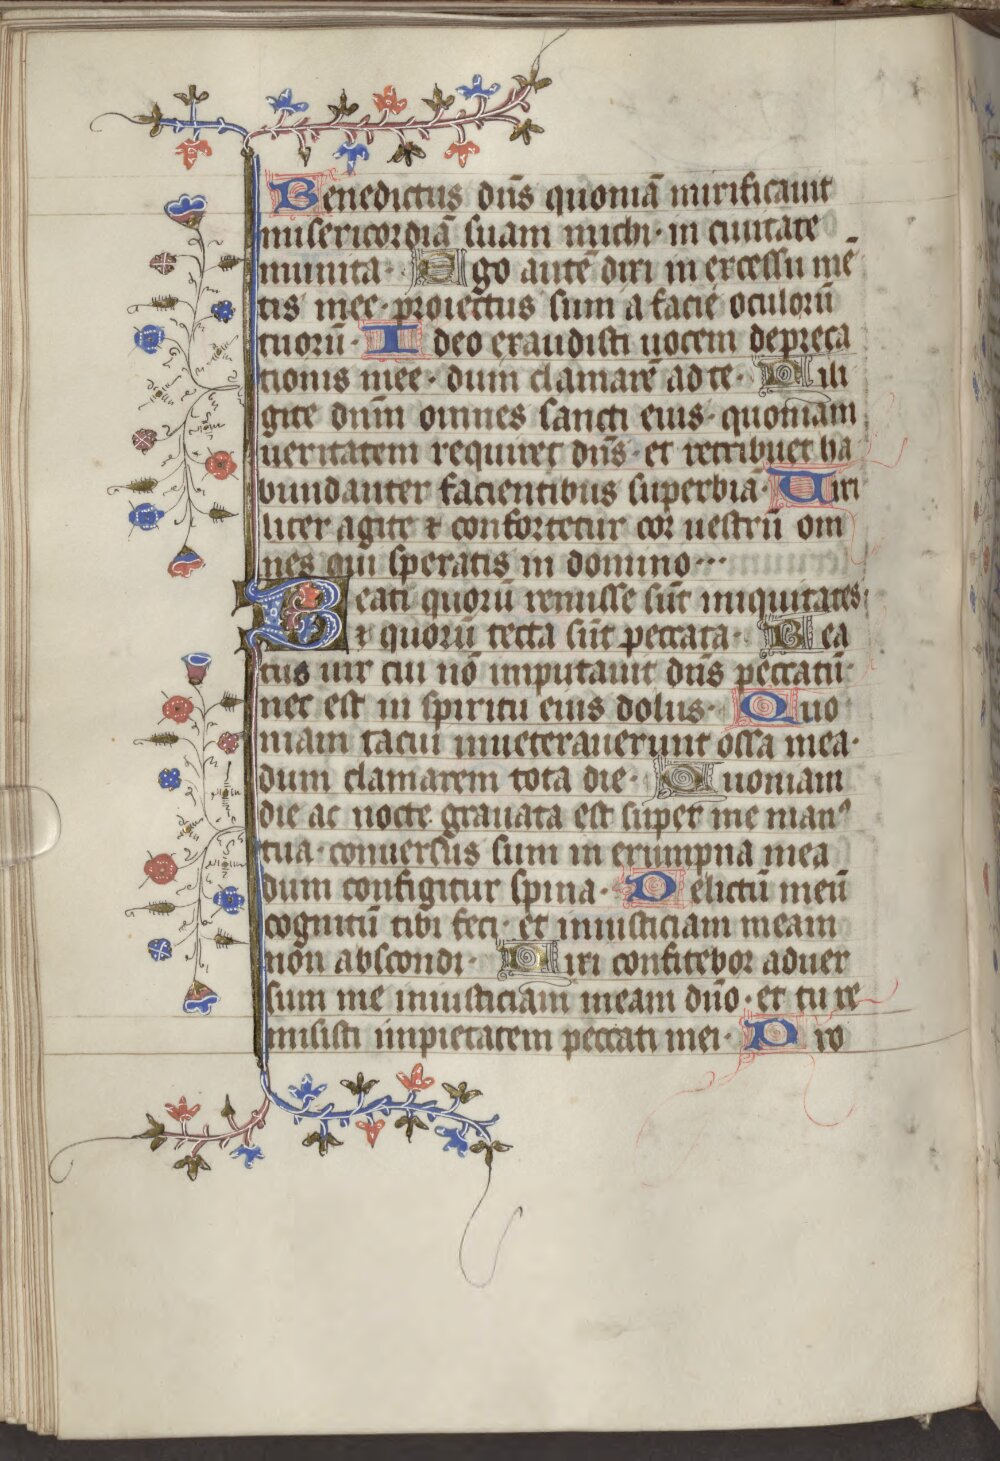 Benedictus dñs quoniã mirificauit
misericordiã suam michi· in ciuitate
munita· Ego autẽ dixi in excessu mẽ
tis mee· proiectus sum a facie oculorũ
tuorũ· Ideo exaudisti uocem depreca
tionis mee· dum clamarẽ ad te· Dili
gite dñm omnes sancti eius· quoniam
ueritatem requiret dñs· et retribuet ha
bundanter facientibus superbiã· Uiri
liter agite ⁊ confortetur cor uestrũ om
nes qui speratis in domino···
Beati quorũ remisse sũt iniquitates·
⁊ quorũ tecta sũt peccata· Bea
tus uir cui nõ imputauit dñs peccatũ·
nec est in spiritu eius dolus· Quo
niam tacui inueterauerunt ossa mea·
dum clamarem tota die· Quoniam
die ac nocte grauata est super me man⁹
tua· conuersus sum in erumpna mea
dum configitur spina· Delictũ meũ
cognitũ tibi feci· et iniusticiam meam
non abscondi· Dixi confitebor aduer
sum me iniusticiam meam dño· et tu re
misisti impietatem peccati mei· Pro